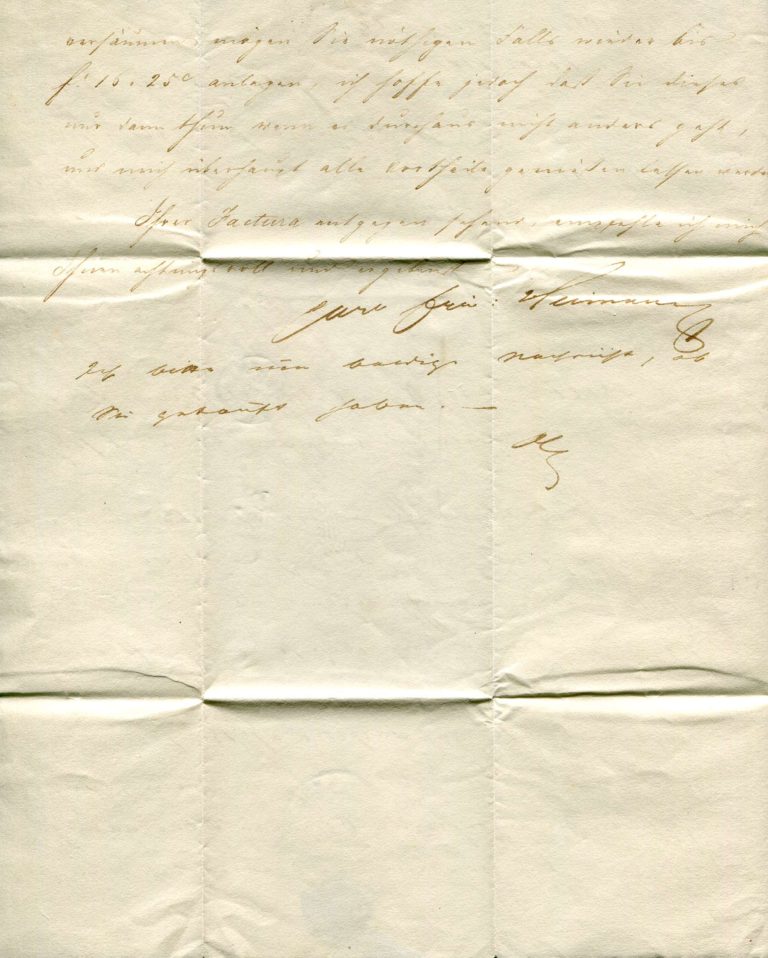 versäumen mögen Sie nöthigen Falls wieder bis
f. 15. 25c anlegen, ich hoffe jedoch daß Sie dieses
nur dann thun wenn es durchaus nicht anders geht,
und mich überhaupt alle Vortheile genießen lassen werden
Ihrer Factura entgegen sehend, empfehle ich mich
Ihnen achtungsvoll und ergebenst
Carl Frie: Heimann
Ich bitte um baldige Nachricht, ob
Sie gekauft haben. —
H